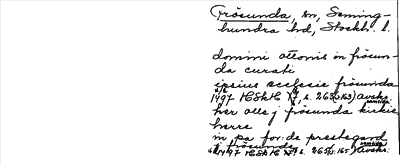 Frösunda, sn, Seming-
hundra hd, Stockh. l.
domini ottonis in frösun-
da curati
ipsius ecclesie frösunda
1497 HSH 18, s. 265 (s. 163) avskr.
her olle j frösunda kirkie
herre
in pa for:de prestegard
j frösunda
1497 HSH 18, s. 265 (s. 165) avskr.